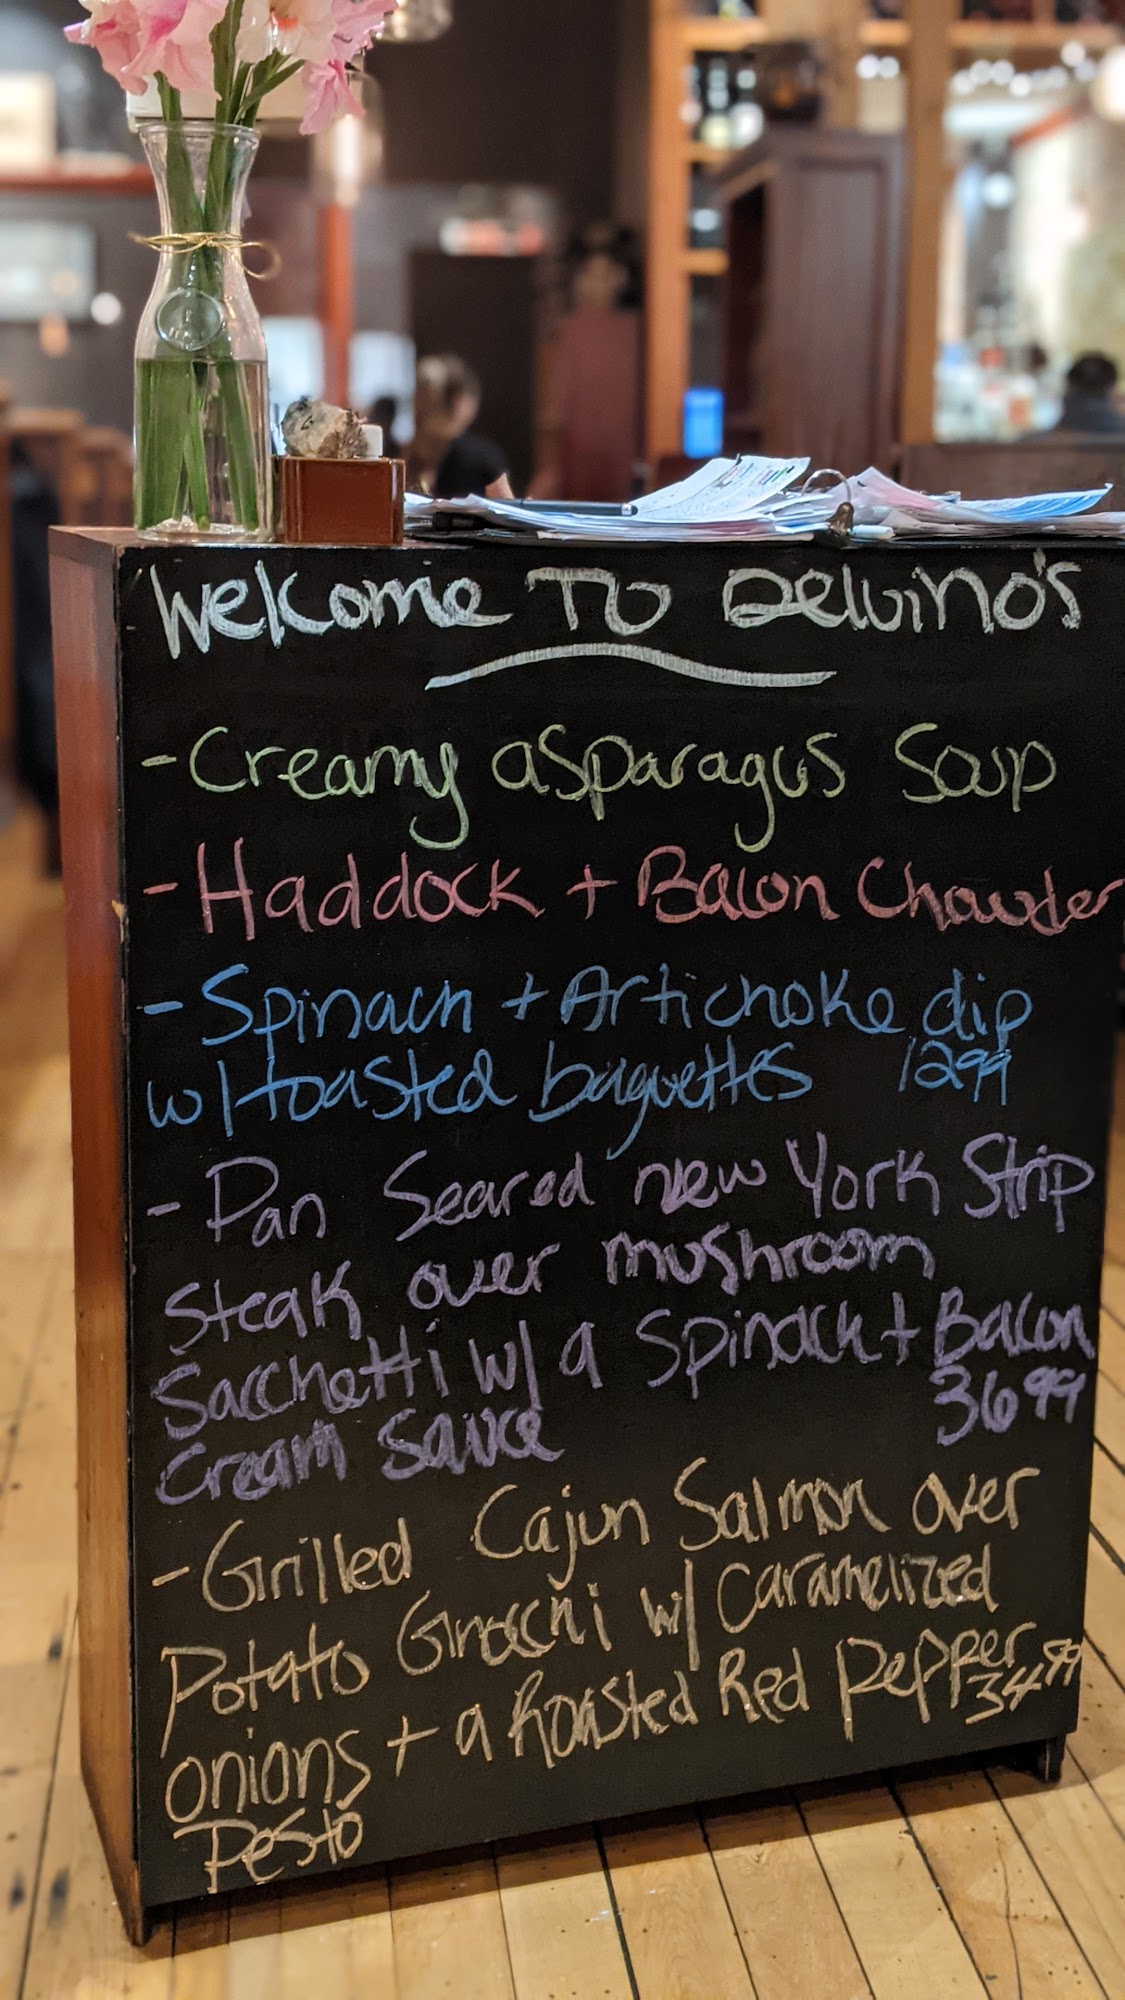 Welcome To Delvino's
- Creamy asparagus Soup
- Haddock + Bacon Chowder
- Spinach + Artichoke dip
w/ toasted baguettes 12 99
- Pan Seared new York Strip
Steak over mushroom
Sacchetti w/ a Spinach + Bacon
Cream Sauce 36 99
- Grilled Cajun Salmon over
Potato Gnocchi w/ Caramelized
onions + a Roasted Red Pepper
Pesto 34.99